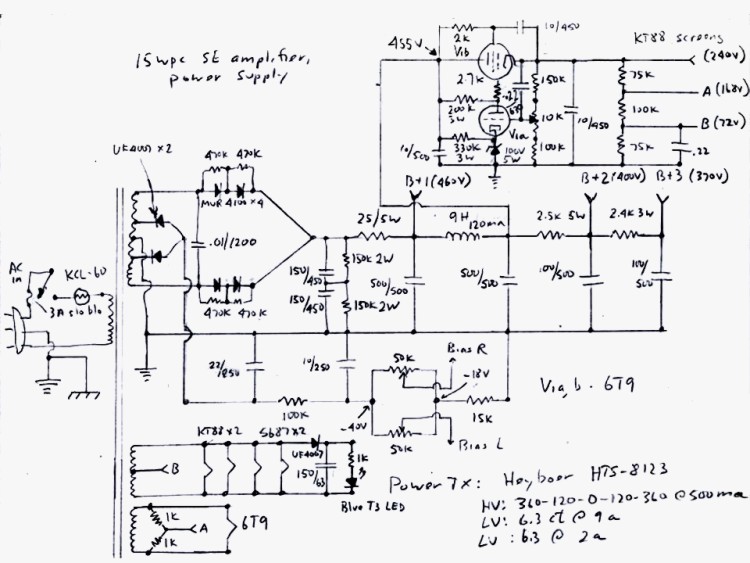 15wpc SE amplifier,
power supply
455V
2K
V1b
10/450
KT88 screens
(240V)
2.7K
150K
75K
A (168V)
200K
3W
.22
630
V1a
10K
10/450
100K
B (72V)
10/500
330K
3W
100V
5W
100K
75K
.22
UF4007 x 2
470K 470K
MUR 4100 x 4
B+1 (460V)
B+2 (400V)
B+3 (370V)
25/5W
9H
120ma
2.5K 5W
2.4K 3W
.01/1200
150/450
150K 2W
150/450
150K 2W
500/500
500/500
100/500
100/500
AC
in
KCL-60
3A slo blo
470K 470K
22/850
10/250
50K
Bias R
-18V
V1a,b - 6T9
100K
-40V
15K
50K
Bias L
KT88 x 2
5687 x 2
UF4007
B
150/63
1K
Blue T3 LED
Power Tx: Heyboer HTS-8123
HV: 360-120-0-120-360 @ 500ma
LV: 6.3 ct @ 9a
LV: 6.3 @ 2a
1K
A
6T9
1K